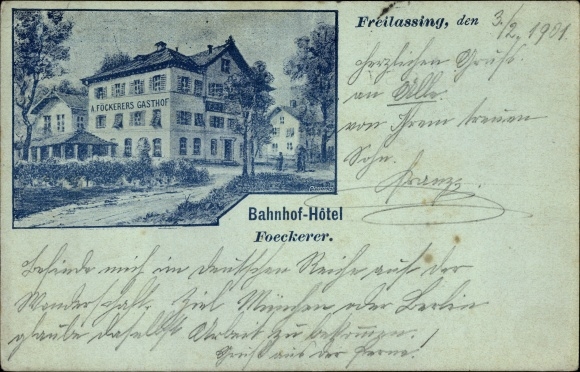 Freilassing, den 3./2. 1901.
A. FÖCKERERS GASTHOF
herzlichen Gruß
an Alle
von Ihrem treuen
Sohn.
Franz.
Bahnhof-Hôtel
Foeckerer.
Befinde mich im deutschen Reiche auf der
Wanderschaft. Ziel München oder Berlin
glaube daselbst Arbeit zu bekommen.
Gruß aus der Ferne!